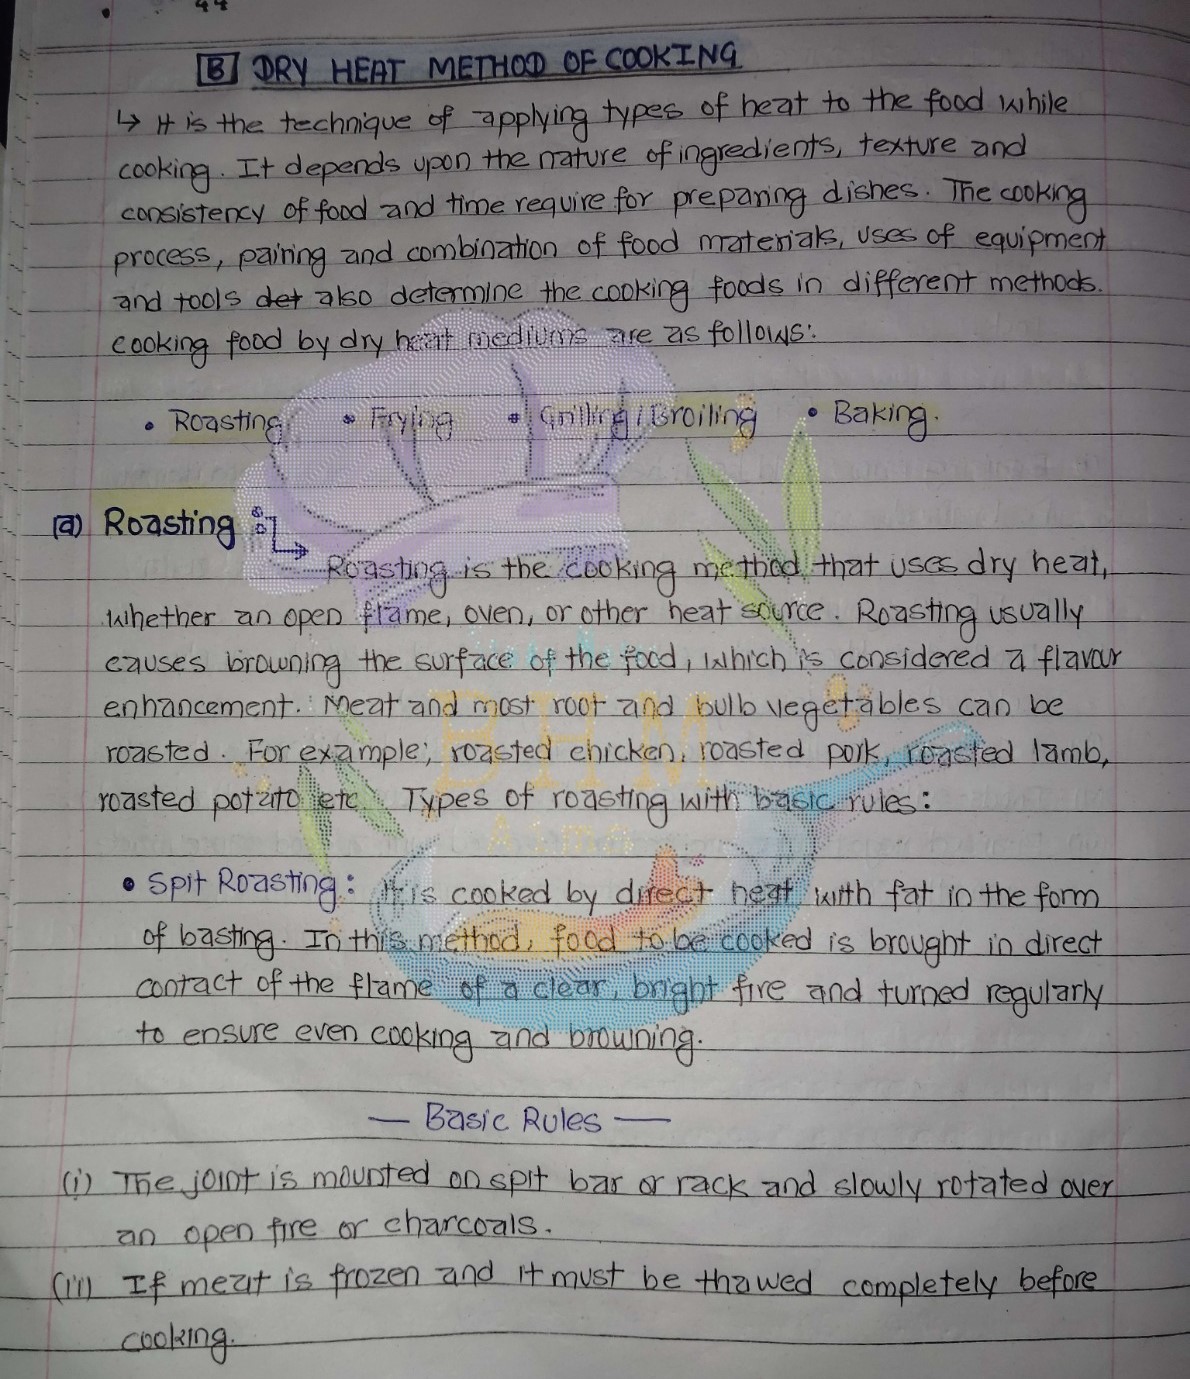 44
[B] DRY HEAT METHOD OF COOKING
↳ It is the technique of applying types of heat to the food while
cooking. It depends upon the nature of ingredients, texture and
consistency of food and time require for preparing dishes. The cooking
process, pairing and combination of food materials, uses of equipment
and tools det also determine the cooking foods in different methods.
cooking food by dry heat mediums are as follows:
• Roasting • Frying • Grilling / Broiling • Baking.
(a) Roasting :
Roasting is the cooking method that uses dry heat,
whether an open flame, oven, or other heat source. Roasting usually
causes browning the surface of the food, which is considered a flavour
enhancement. Meat and most root and bulb vegetables can be
roasted. For example; roasted chicken, roasted pork, roasted lamb,
roasted potato etc. Types of roasting with basic rules:
BHM
• Spit Roasting: It is cooked by direct heat with fat in the form
of basting. In this method, food to be cooked is brought in direct
contact of the flame of a clear, bright fire and turned regularly
to ensure even cooking and browning.
— Basic Rules —
(i) The joint is mounted on spit bar or rack and slowly rotated over
an open fire or charcoals.
(ii) If meat is frozen and it must be thawed completely before
cooking.